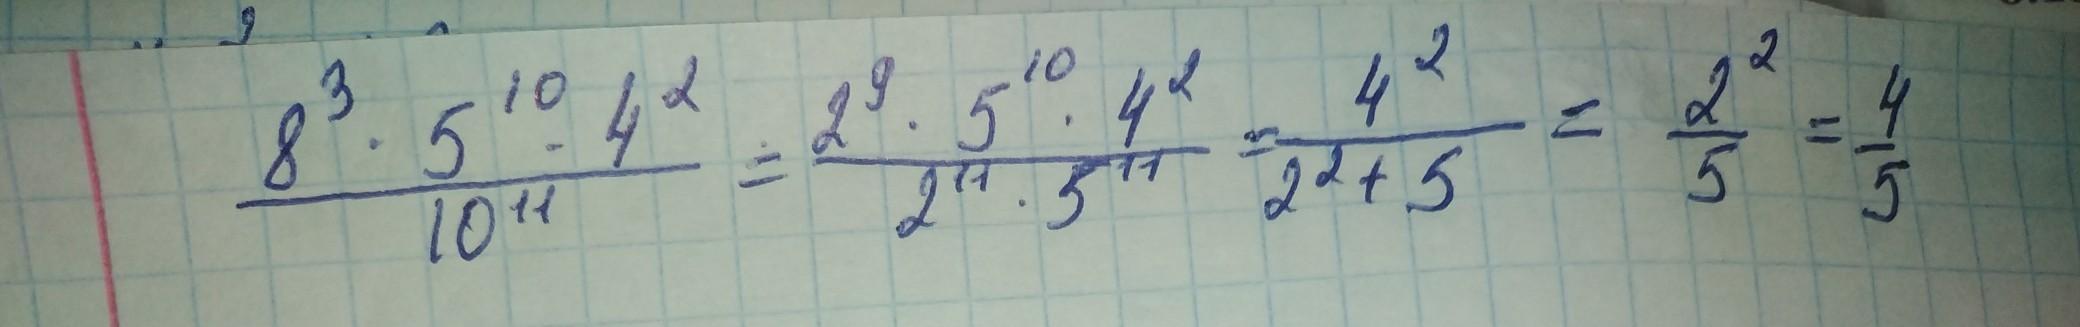 8³ · 5¹⁰ · 4² / 10¹¹ = 2⁹ · 5¹⁰ · 4² / 2¹¹ · 5¹¹ = 4² / 2² + 5 = 2² / 5 = 4 / 5